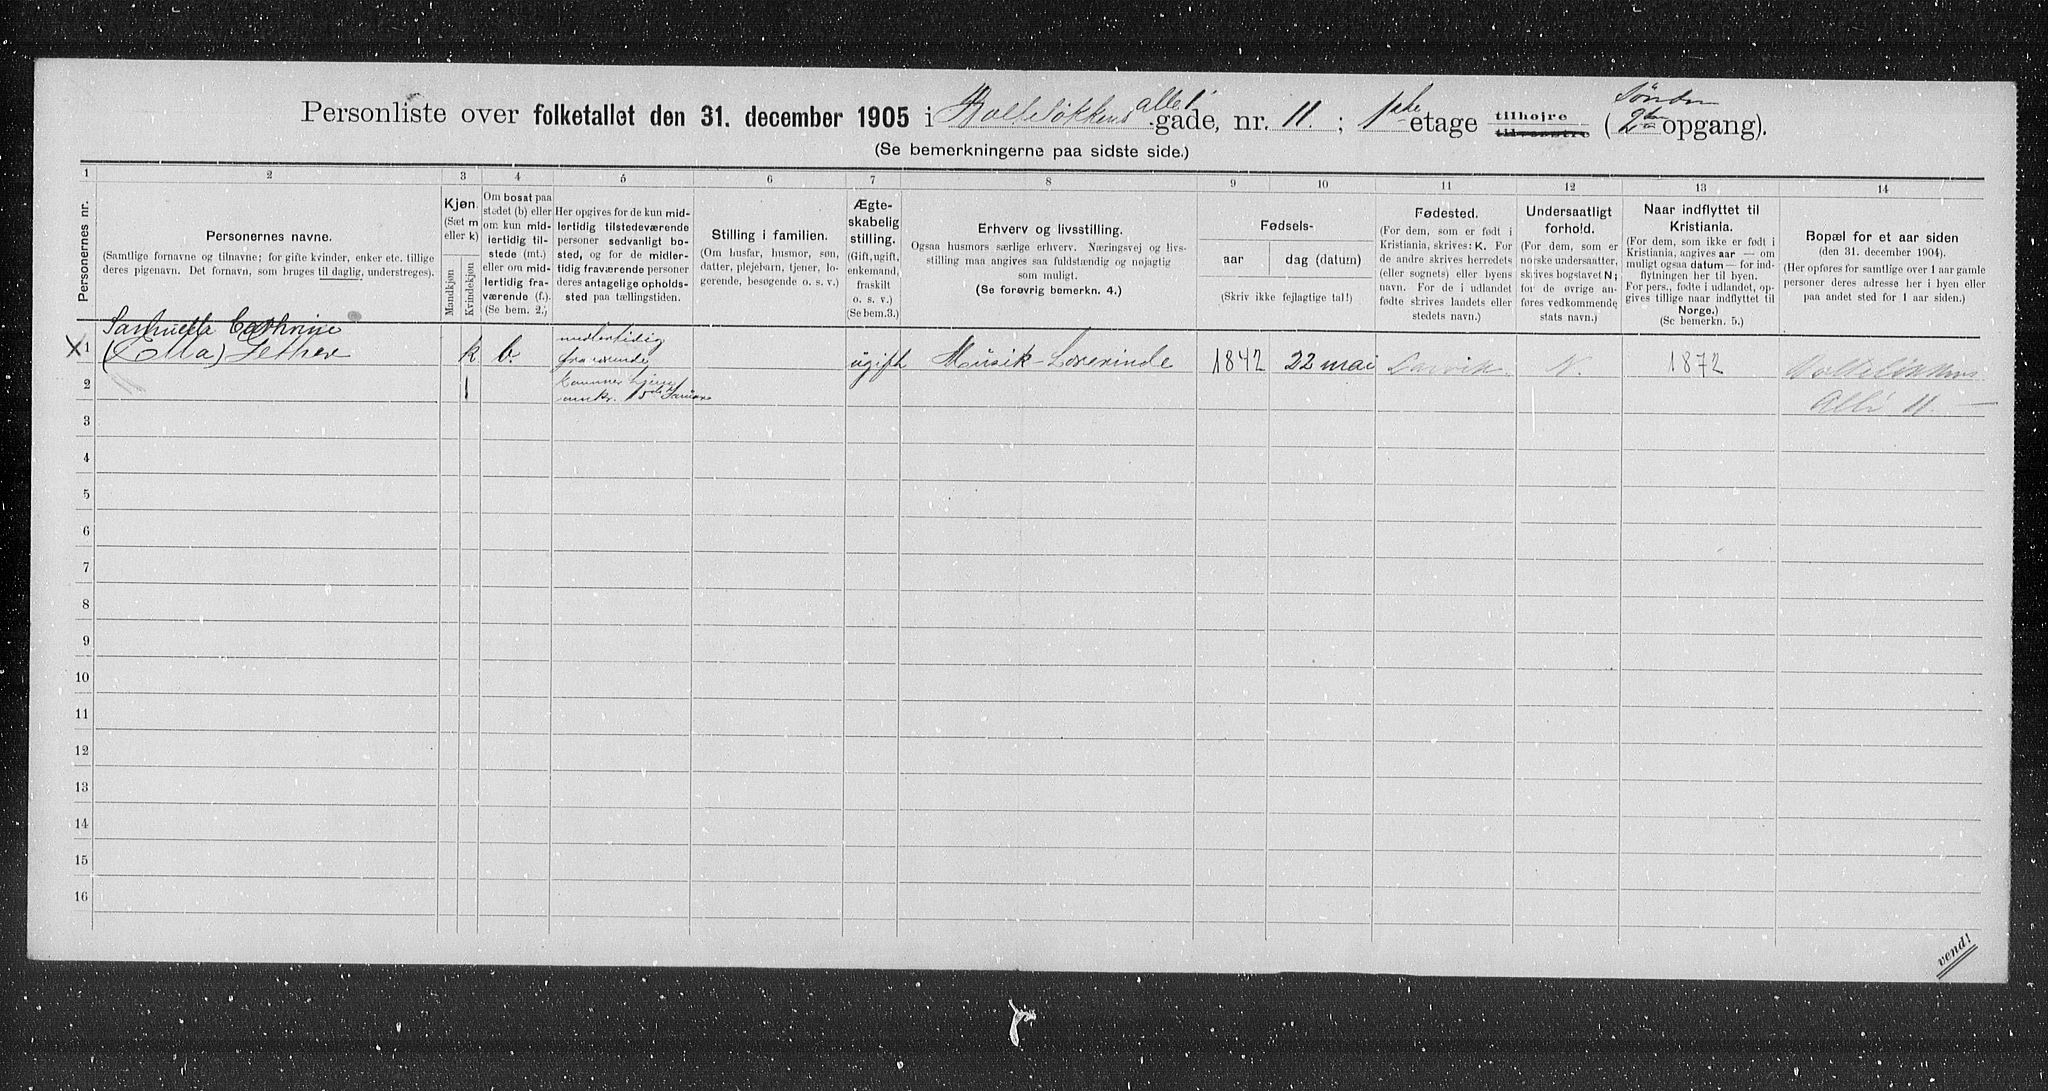 Personliste over folketallet den 31. december 1905 i Bolteløkkens allé gade, nr. 11. ; 1ste etage tilhøjre tilvenstre ( Søndre 2den opgang).
(Se bemerkningerne paa sidste side.)
1 2 3 4 5 6 7 8 9 10 11 12 13 14
Personernes nr.
Personernes navne.
(Samtlige fornavne og tilnavne; for gifte kvinder, enker etc. tillige
deres pigenavn. Det fornavn, som bruges til daglig, understreges).
Kjøn.
(Sæt m
eller k)
Mandkjøn
Kvindekjøn
Om bosat paa
stedet (b) eller
om kun mid-
lertidig til-
stede (mt.)
eller om mid-
lertidig fra-
værende (f.).
(Se bem. 2.)
Her opgives for de kun mid-
lertidig tilstedeværende
personer sedvanligt bo-
sted, og for de midler-
tidig fraværende personer
deres antagelige opholds-
sted paa tællingstiden.
Stilling i familien.
(Om husfar, husmor, søn,
datter, plejebarn, tjener, lo-
gerende, besøgende o. s. v.)
Ægte-
skabelig
stilling.
(Gift, ugift,
enkemand,
fraskilt
o. s. v.)
(Se bem.3.)
Erhverv og livsstilling.
Ogsaa husmors særlige erhverv. Næringsvej og livs-
stilling maa angives saa fuldstændig og nøjagtig
som muligt.
(Se forøvrig bemerkn. 4.)
Fødsels-
aar
dag (datum)
(Skriv ikke fejlagtige tal!)
Fødested.
(For dem, som er født i
Kristiania, skrives: K. For
de andre skrives herredets
(eller sognets) eller byens
navn. For de i udlandet
fødte skrives landets eller
stedets navn.)
Undersaatligt
forhold.
(For dem, som er
norske undersaatter,
skrives bogstavet N;
for de øvrige an-
føres vedkommende
stats navn.)
Naar indflyttet til
Kristiania.
(For dem, som ikke er født i
Kristiania, angives aar — om
muligt ogsaa datum — for ind-
flytningen her til byen.
For pers., fødte i udlandet, op-
gives tillige naar indflyttet til
Norge.)
(Se bemerkn. 5.)
Bopæl for et aar siden
(den 31. december 1904).
(Her opføres for samtlige over 1 aar gamle
personer deres adresse her i byen eller
paa andet sted for 1 aar siden.)
Cathrine
1 (Ella) k b. midlertidig fraværende ugift Musik-Lærerinde 1842 22 mai Larvik N. 1872 Bolteløkkens
2 Januar Allé 11
3
4
5
6
7
8
9
10
11
12
13
14
15
16
vend!